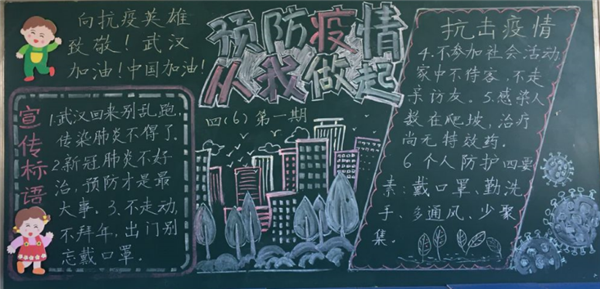 向抗疫英雄
致敬！武汉
加油！中国加油！
宣传标语
1.武汉回来别乱跑，
传染肺炎不得了.
2.新冠肺炎不好
治，预防才是最
大事。3.不走动，
不拜年，出门别
忘戴口罩.
预防疫情
从我做起
四(6)第一期
抗击疫情
4.不参加社会活动
家中不待客，不走
亲访友。5.感染人
数在爬坡，治疗
尚无特效药。
6 个人防护四要
素：戴口罩，勤洗
手，多通风，少聚
集。